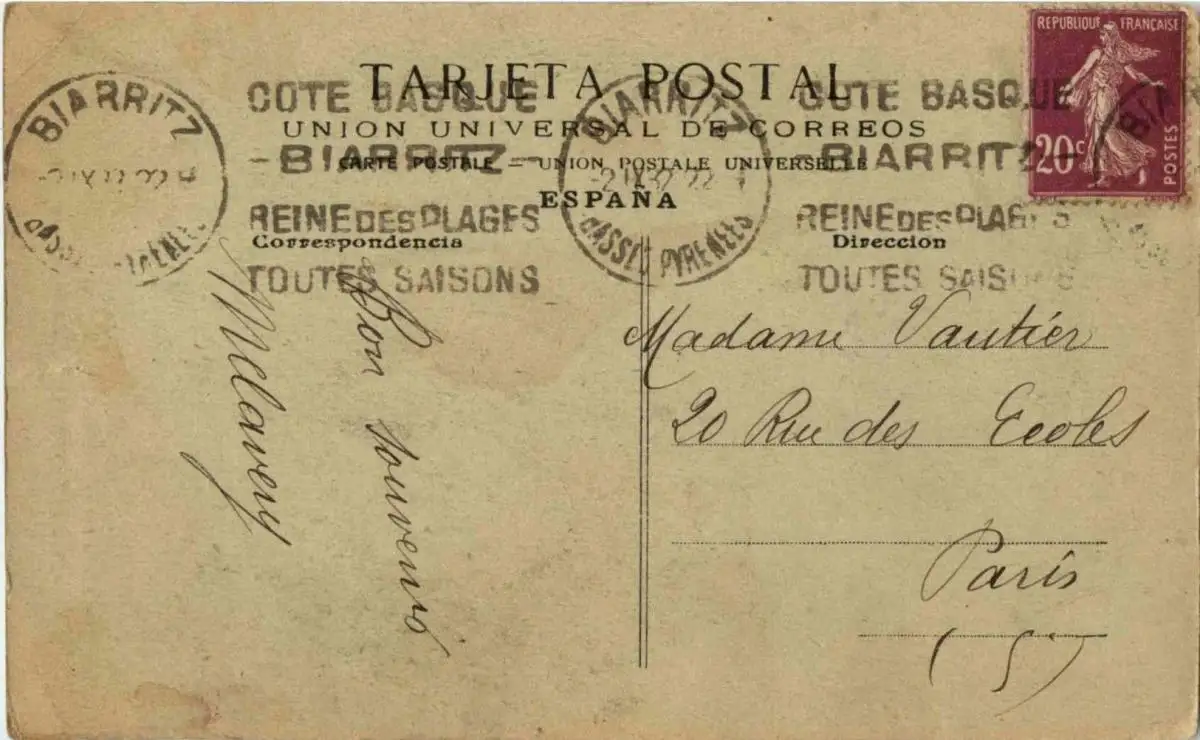 REPUBLIQUE FRANÇAISE
20c
POSTES
TARJETA POSTAL
UNION UNIVERSAL DE CORREOS
CARTE POSTALE = UNION POSTALE UNIVERSELLE
ESPAÑA
BIARRITZ
COTE BASQUE
-BIARRITZ-
REINE DES PLAGES
TOUTES SAISONS
BIARRITZ
BASSES PYRENEES
COTE BASQUE
-BIARRITZ-
REINE DES PLAGES
TOUTES SAISONS
BIA
Correspondencia
Direccion
Bon souvenir
Madame Vautier
20 Rue des Ecoles
Paris
(5)